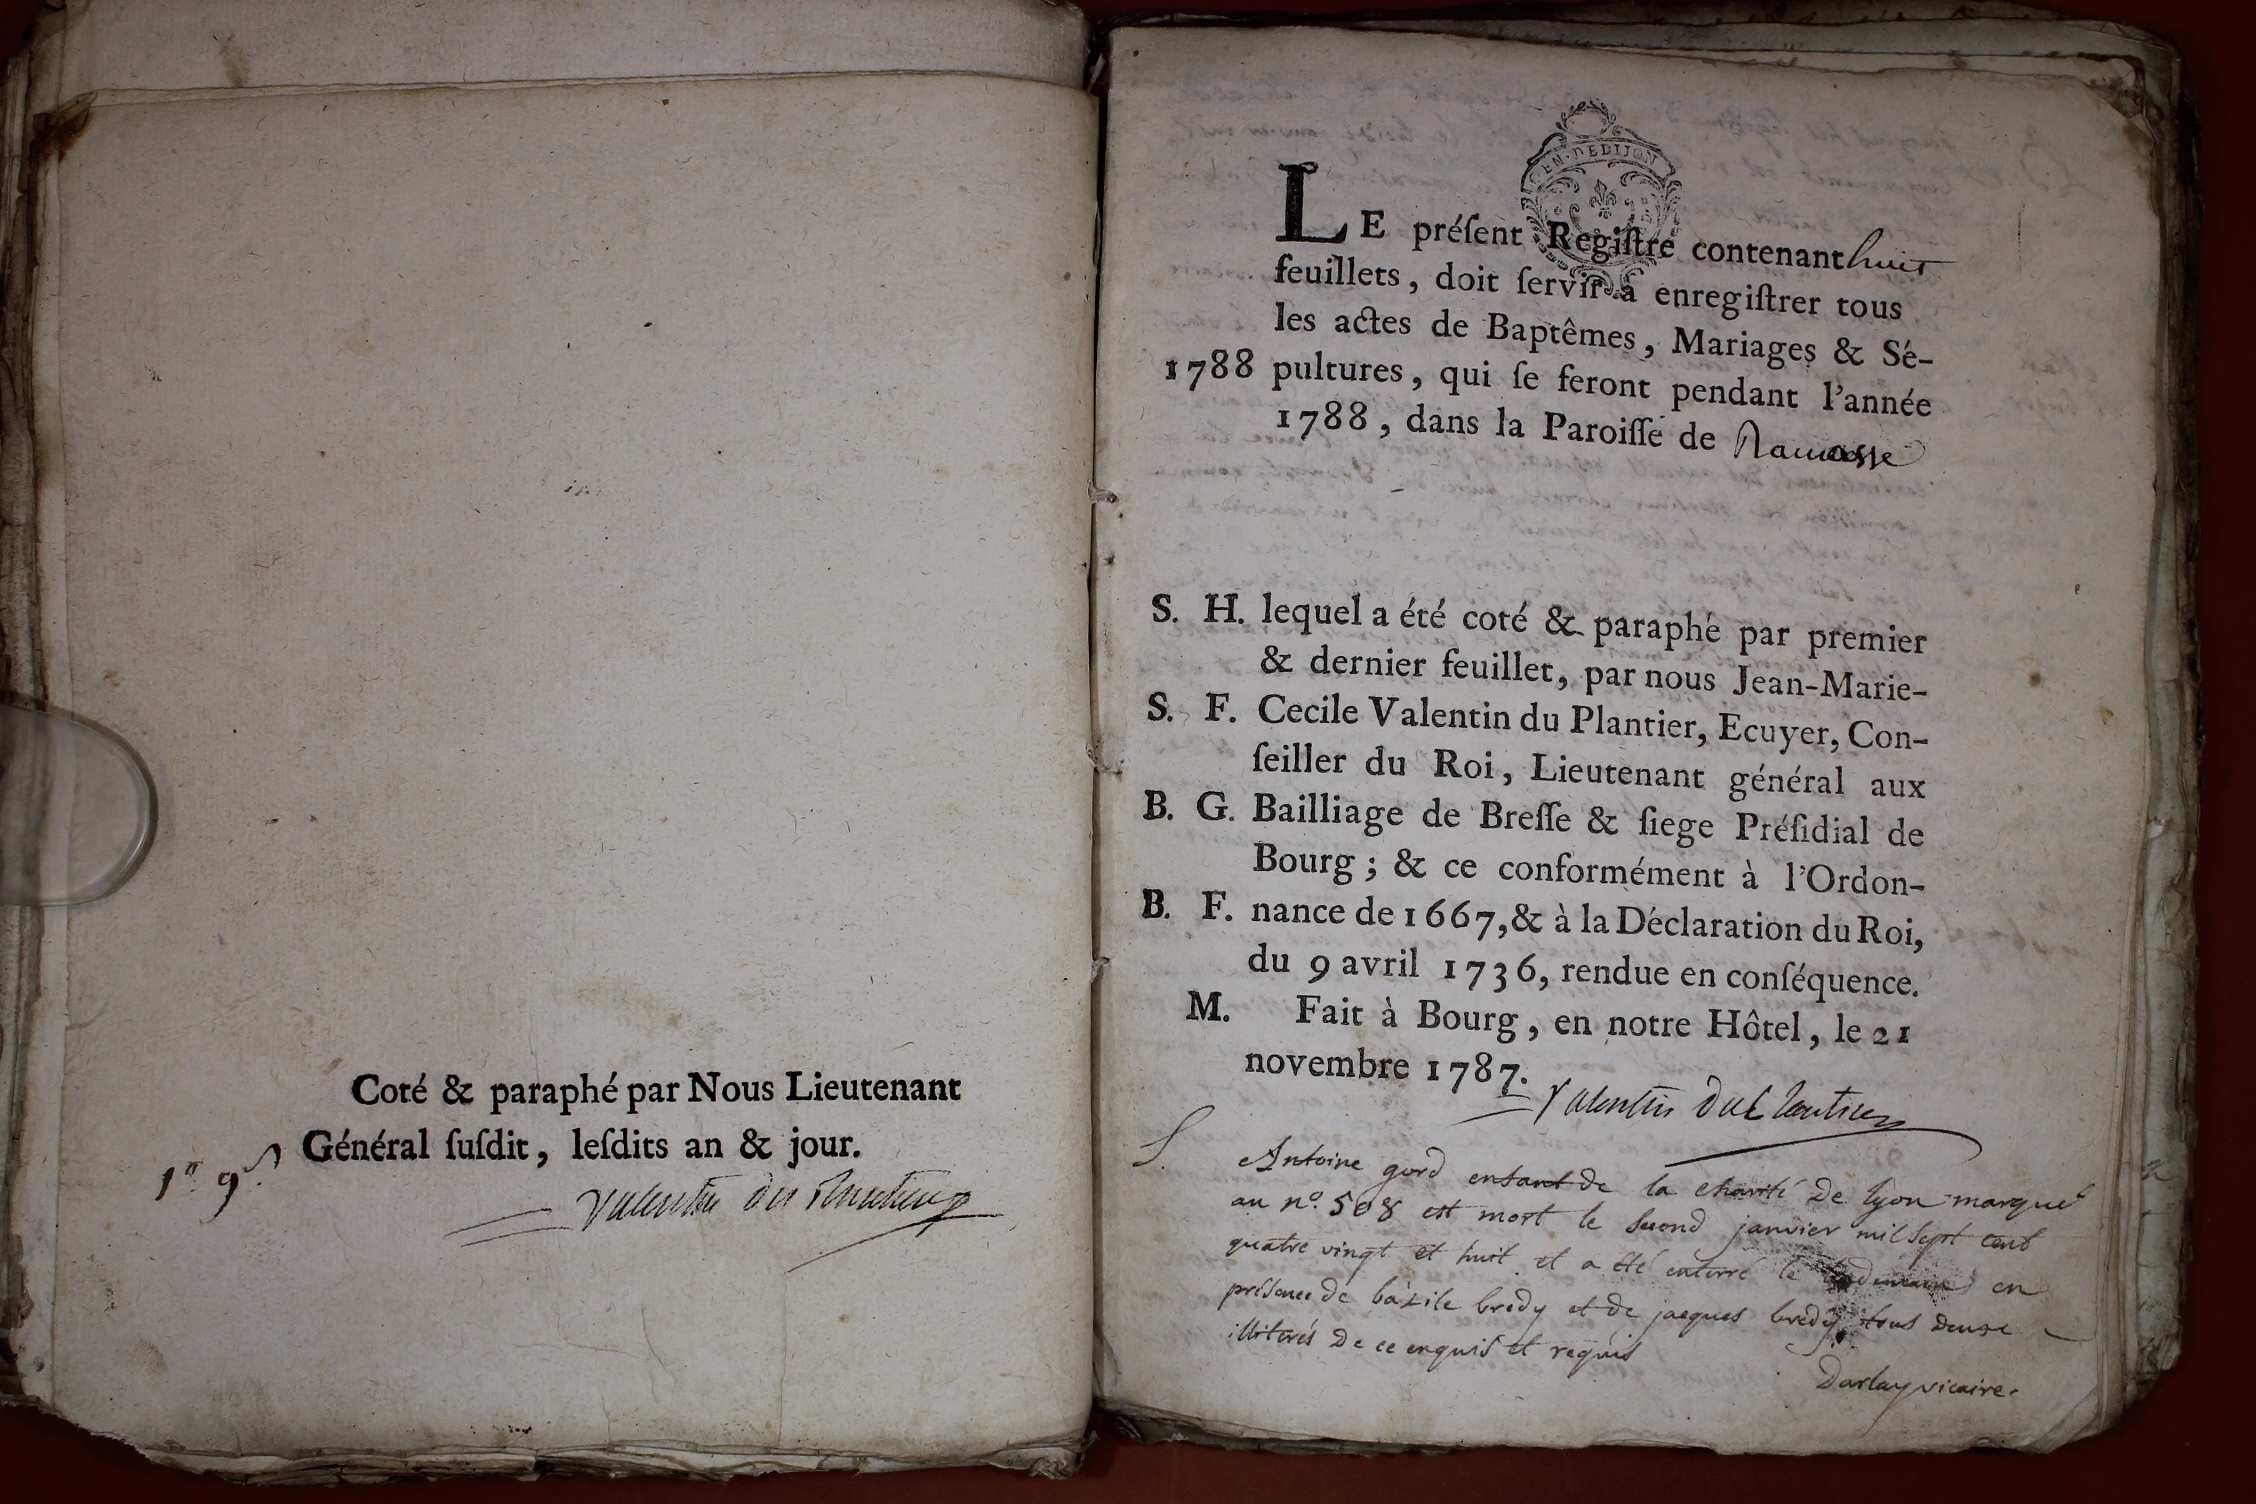 Coté & paraphé par Nous Lieutenant
Général ſuſdit, leſdits an & jour.
Valentin du Plantier
GEN. DE DIJON
LE préſent Regiſtre contenant huit
feuillets, doit ſervir à enregiſtrer tous
les actes de Baptêmes, Mariages & Sé-
1788 pultures, qui ſe feront pendant l'année
1788, dans la Paroiſſe de Ramasse
S. H. lequel a été coté & paraphé par premier
& dernier feuillet, par nous Jean-Marie-
S. F. Cecile Valentin du Plantier, Ecuyer, Con-
ſeiller du Roi, Lieutenant général aux
B. G. Bailliage de Breſſe & ſiege Préſidial de
Bourg; & ce conformément à l'Ordon-
B. F. nance de 1667, & à la Déclaration du Roi,
du 9 avril 1736, rendue en conſéquence.
M. Fait à Bourg, en notre Hôtel, le 21
novembre 1787.
Valentin du Plantier
S. Antoine gord enfant de la charité de lyon marqué
au n.o 508 est mort le second janvier mil sept cent
quatre vingt et huit et a été enterré le lendemain en
présence de bazile bredy et de jacques bredy tous deux
illiterés de ce enquis et requis
Darlay vicaire.